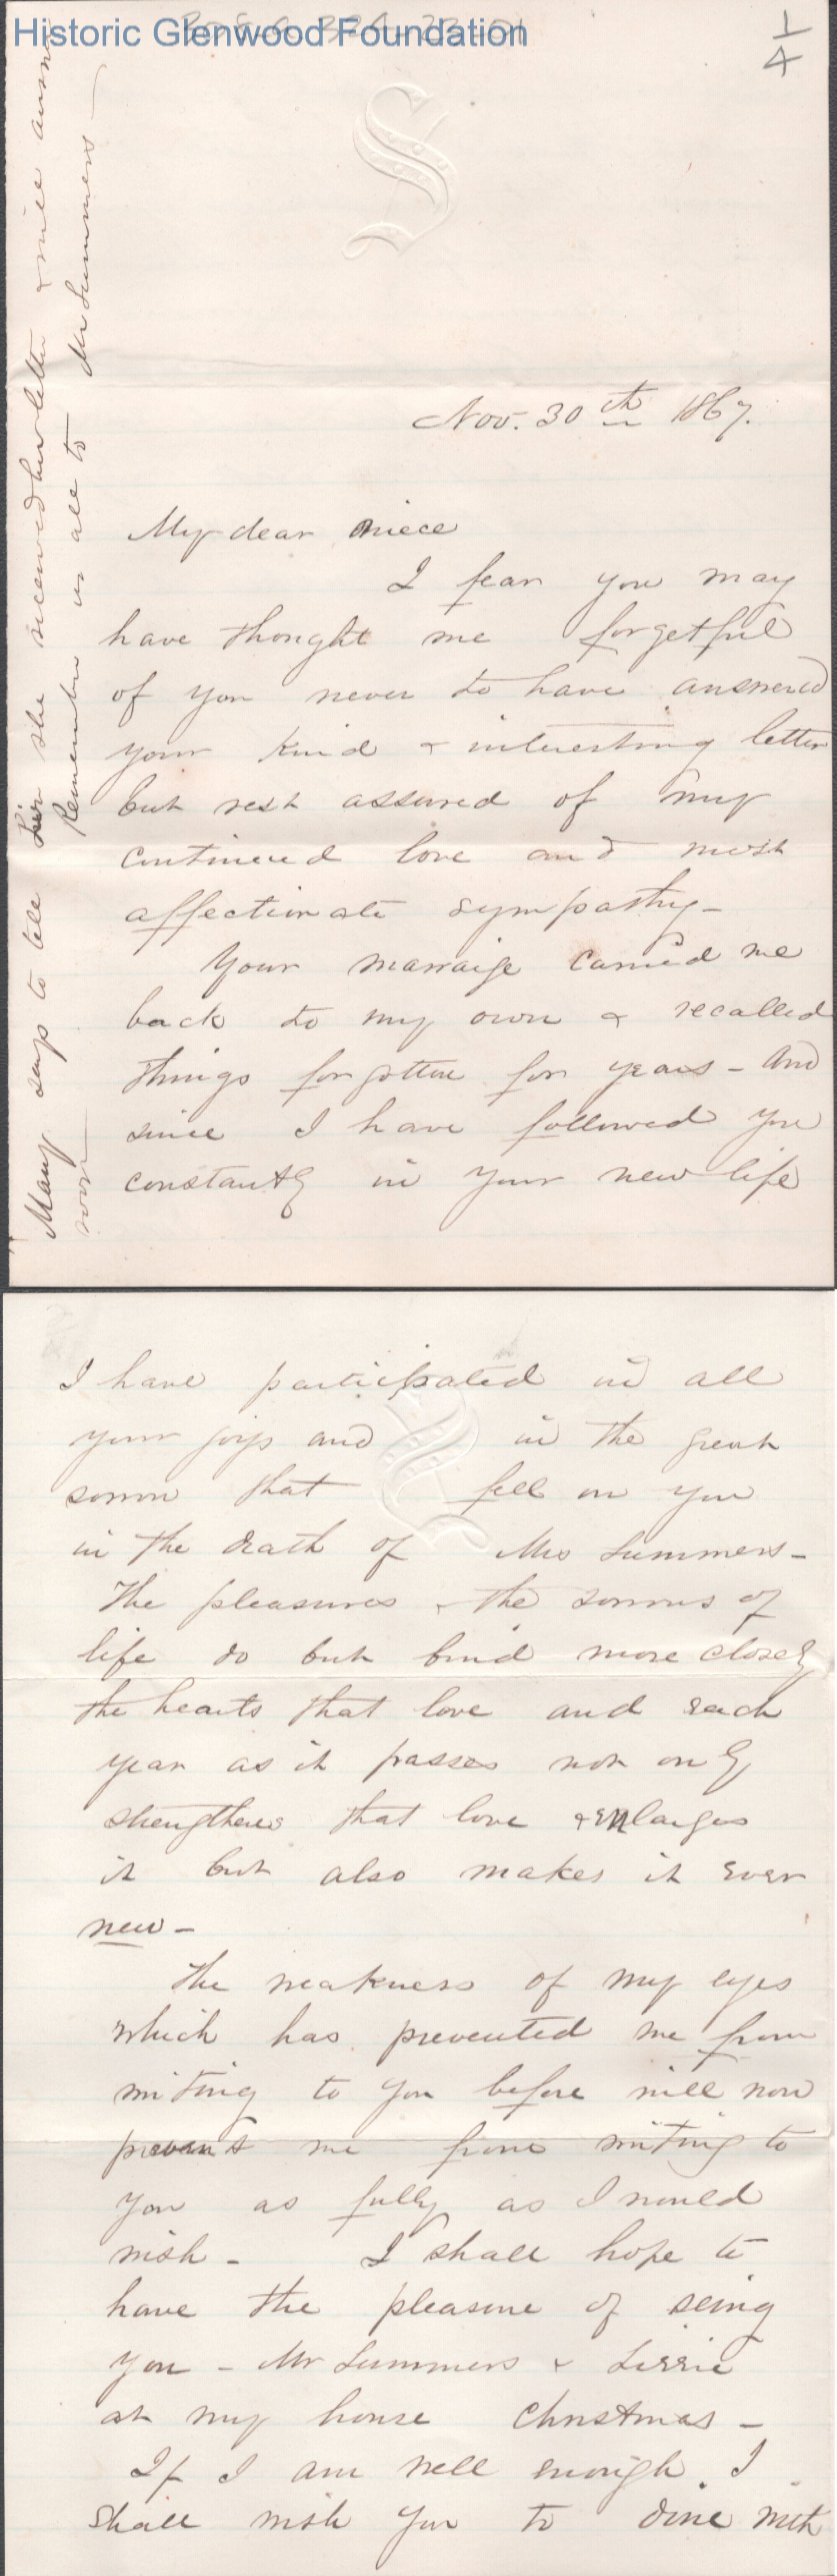 Historic Glenwood Foundation
1/4
S
Nov. 30th 1867.
My dear niece
I fear you may
have thought me forgetful
of you never to have answered
your kind & interesting letter
but rest assured of my
continued love and most
affectionate sympathy-
Your marraige carried me
back to my own & recalled
things forgotten for years - And
since I have followed you
constantly in your new life
Many says to tell she received her letter & will answer
soon
Remember us all to Mr Summers-
I have participated in all
your joys and in the great
sorrow that fell on you
in the death of Mrs Summers-
The pleasures & the sorrows of
life do but bind more closely
the hearts that love and each
year as it passes not only
strengthens that love & enlarges
it but also makes it ever
new-
The weakness of my eyes
which has prevented me from
writing to you before will now
prevent me from writing to
you as fully as I would
wish- I shall hope to
have the pleasure of seing
you - Mr Summers & Lizzie
at my house Christmas-
If I am well enough I
shall wish you to dine with